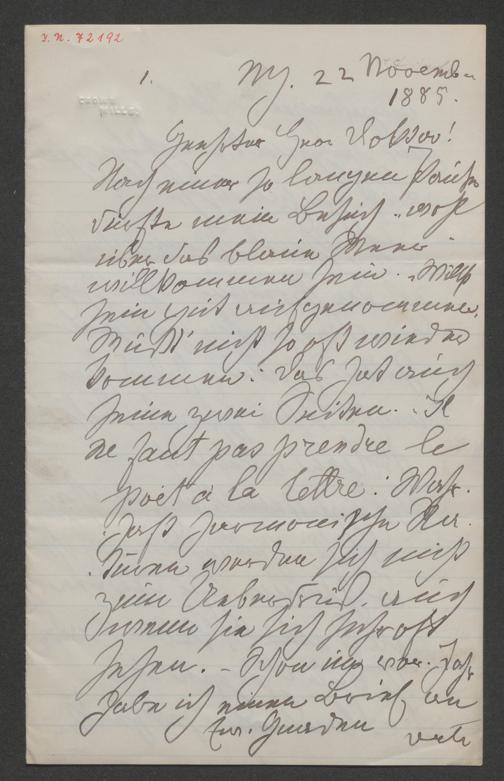 I.N. 72192
1. NY. 22 November
1885.
Geehrter Herr Doktor!
Nach einer so langen Pause
dürfte mein Besuch, wohl
über das blaue Meer
willkommen sein. „Willst
sein gut aufgenommen,
Mußt nicht so oft wieder
kommen: das hat auch
seine zwei Seiten. Il
ne faut pas prendre le
poët à la lettre: Wahr-
haft harmonische Na-
turen werden sich nicht
zum Ueberdruß, auch
wenn sie sich sehr oft
sehen. – Schon im vor. Jahr
habe ich einen Brief an
Ew. Gnaden